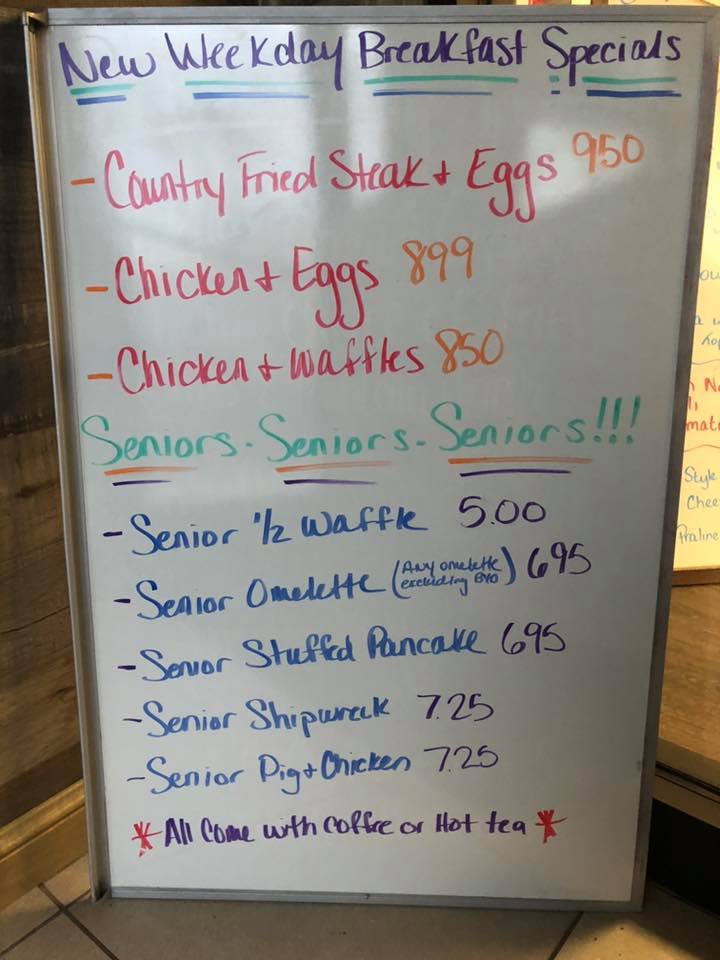 New Weekday Breakfast Specials
- Country Fried Steak + Eggs 950
- Chicken + Eggs 899
- Chicken + Waffles 850
Seniors - Seniors - Seniors!!!
- Senior 1/2 Waffle 5.00
- Senior Omelette (Any omelette excluding BYO) 695
- Senior Stuffed Pancake 695
- Senior Shipwreck 7.25
- Senior Pig + Chicken 7.25
* All Come with coffee or Hot tea *
Style
Chee
Praline